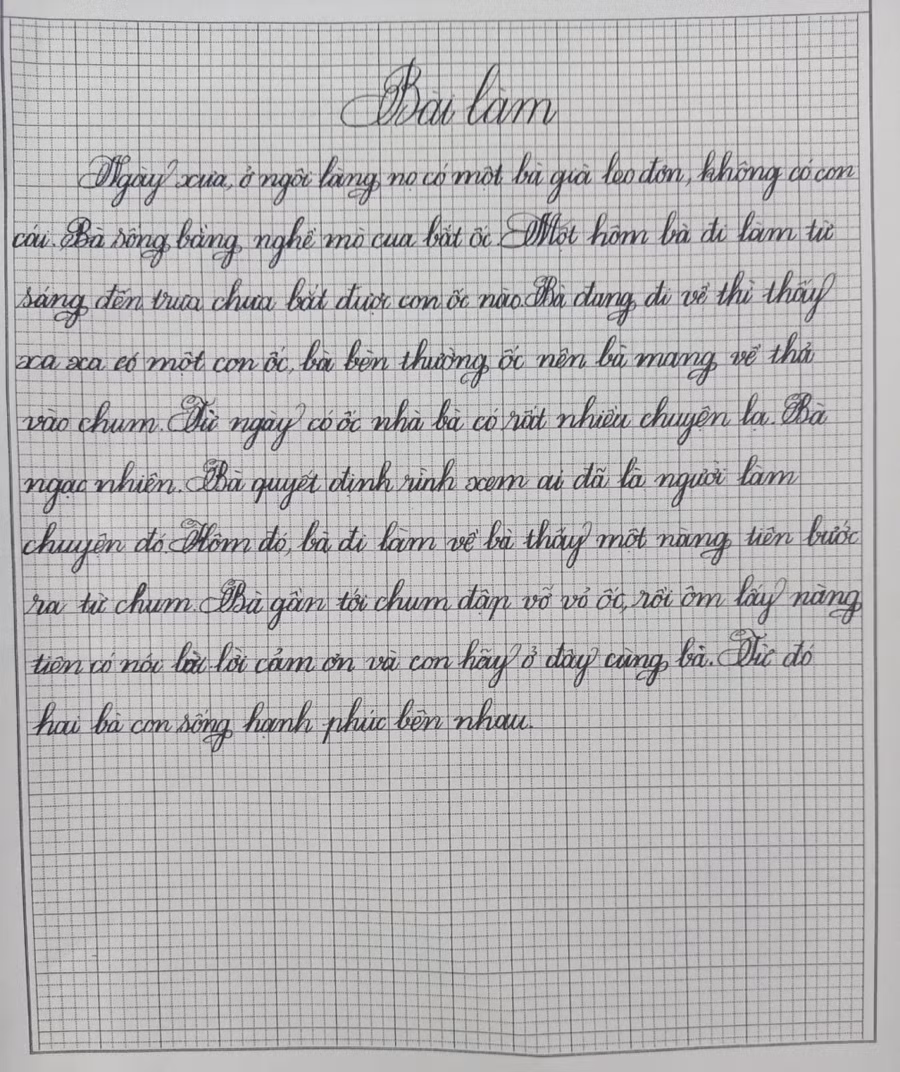 Bài làm
Ngày xưa, ở ngôi làng nọ có một bà già leo đơn, không có con
cái. Bà sống bằng nghề mò cua bắt ốc. Một hôm bà đi làm từ
sáng đến trưa chưa bắt được con ốc nào. Bà đang đi về thì thấy
xa xa có một con ốc, bà bèn thường ốc nên bà mang về thả
vào chum. Từ ngày có ốc nhà bà có rất nhiều chuyện lạ. Bà
ngạc nhiên. Bà quyết định rình xem ai đã là người làm
chuyện đó. Hôm đó, bà đi làm về bà thấy một nàng tiên bước
ra từ chum. Bà gần tới chum đập vỡ vỏ ốc, rồi ôm lấy nàng
tiên có nói lời cảm ơn và con hãy ở đây cùng bà. Từ đó
hai bà con sống hạnh phúc bên nhau.